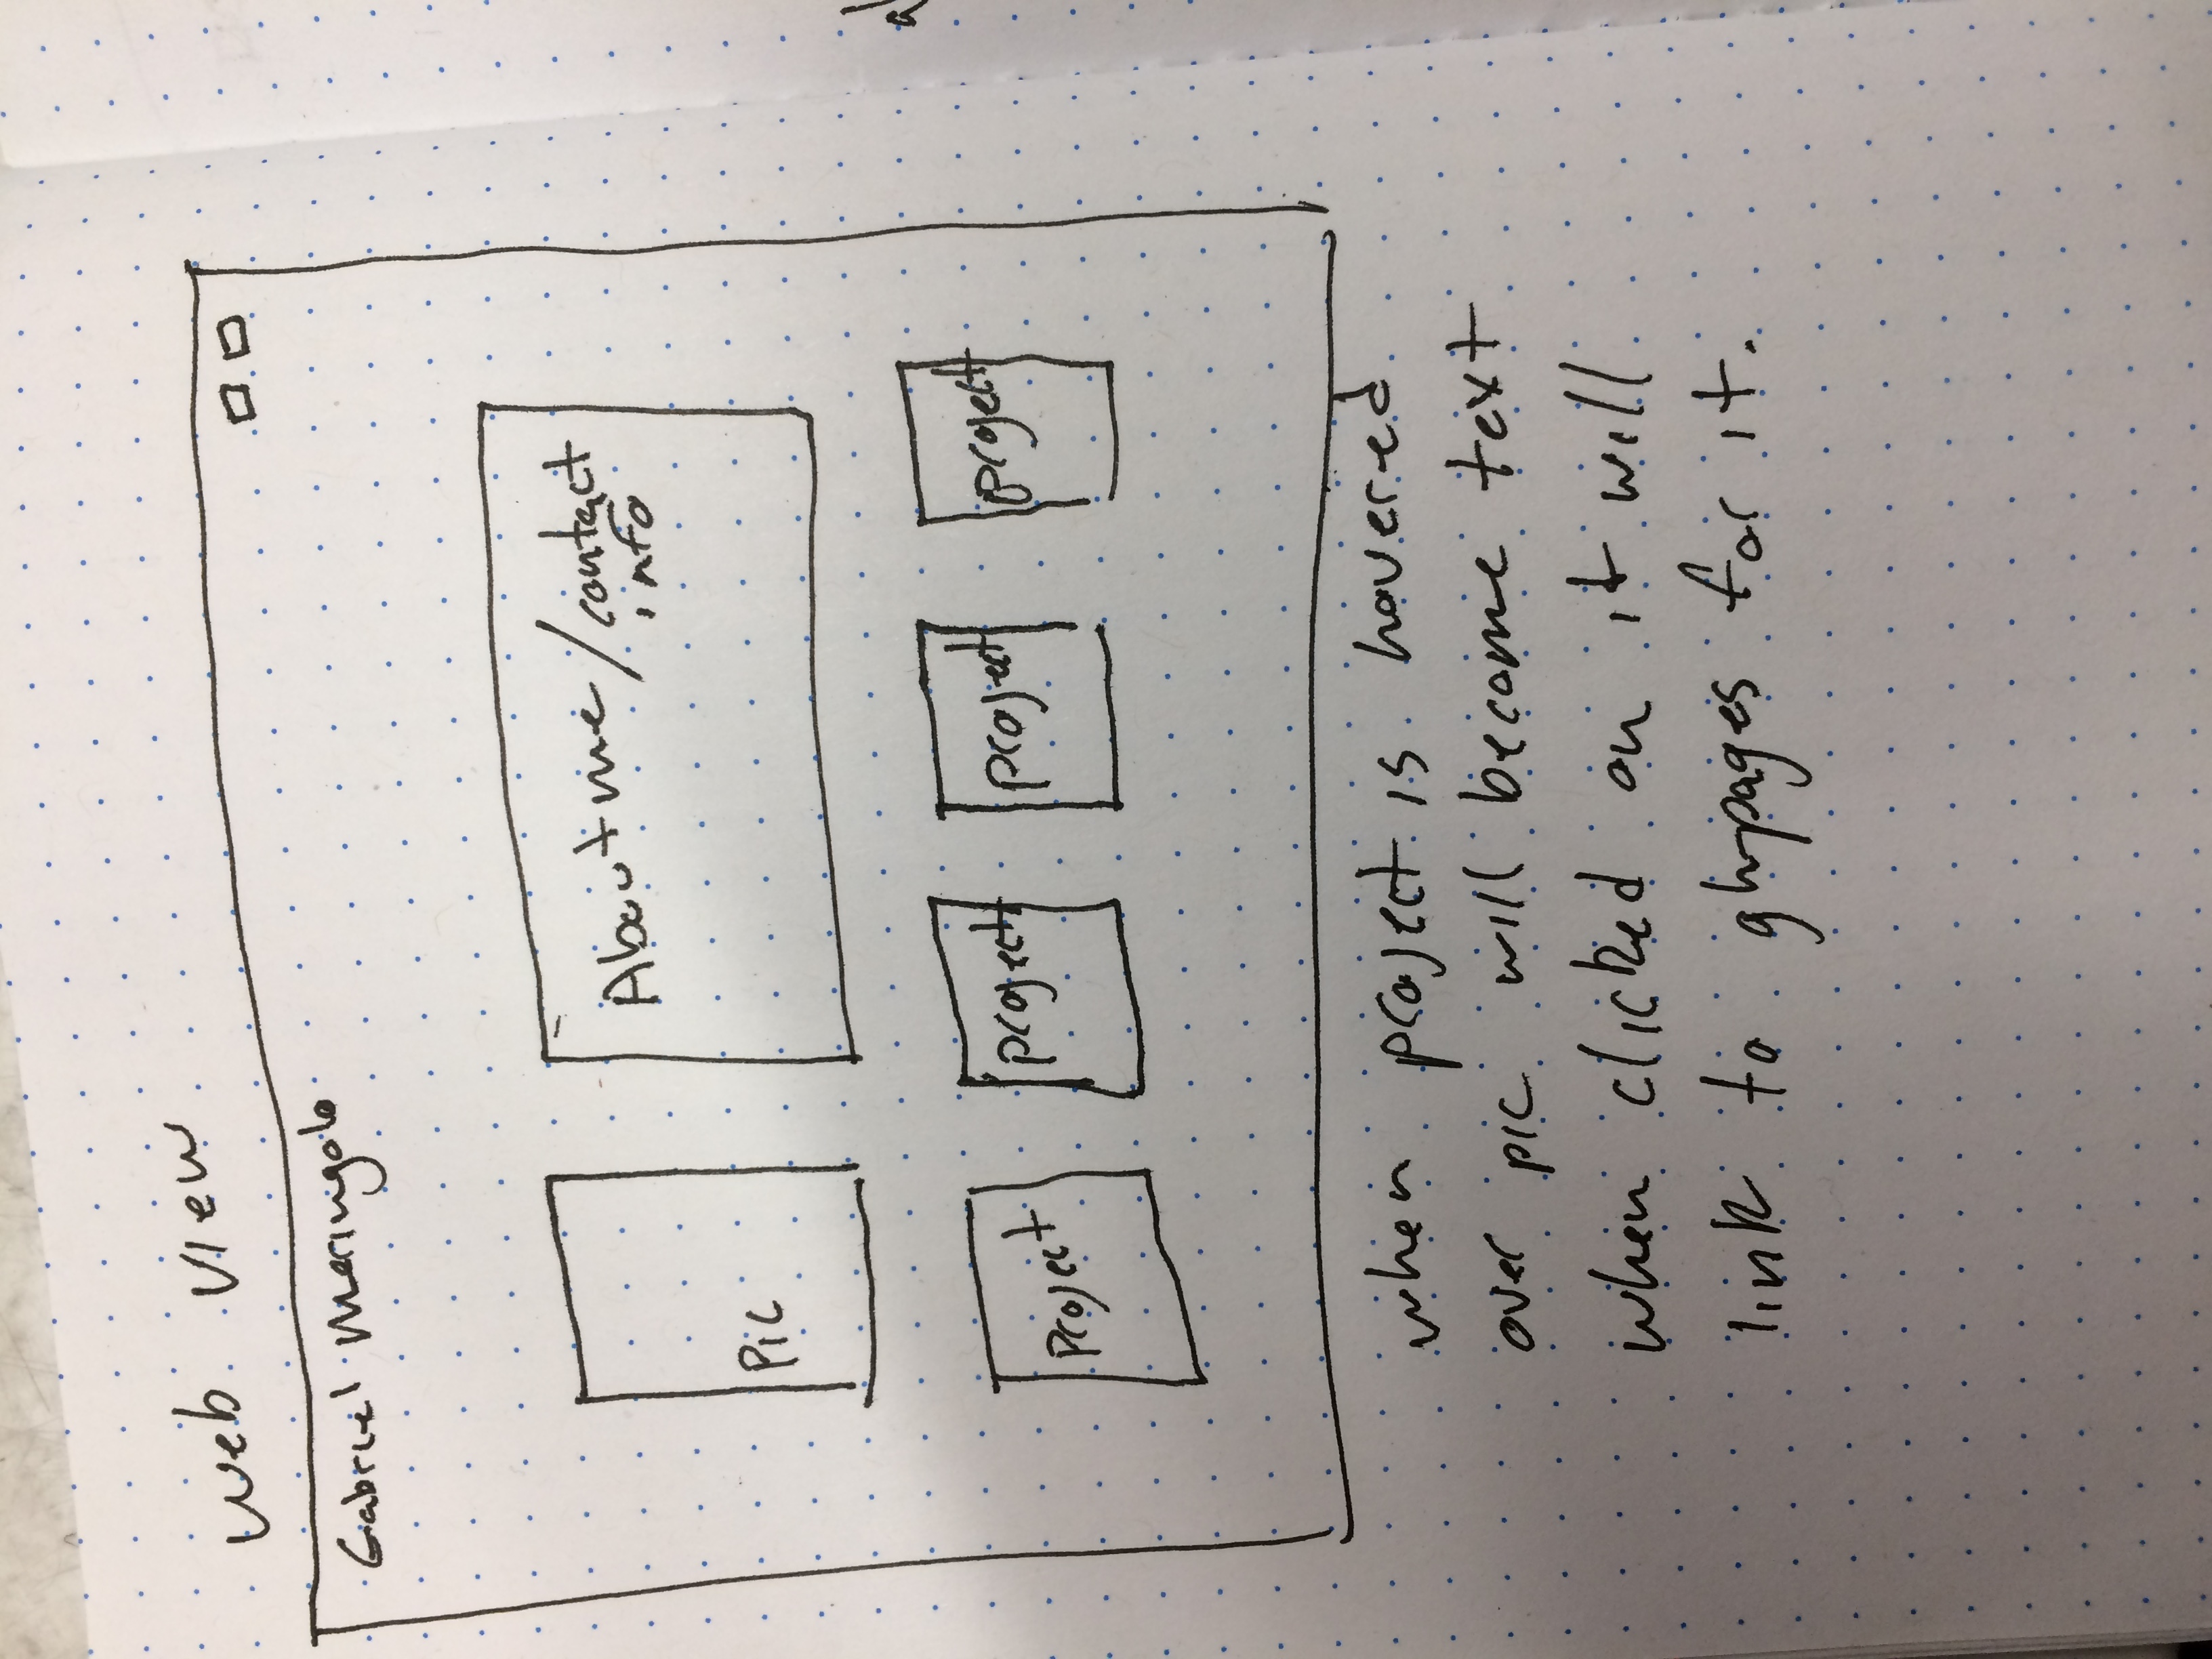 Web View
Gabriel Meringolo
About me / contact
info
Pic
Project
project
project
project
when project is hovered
over pic will become text
when clicked on it will
link to gh-pages for it.